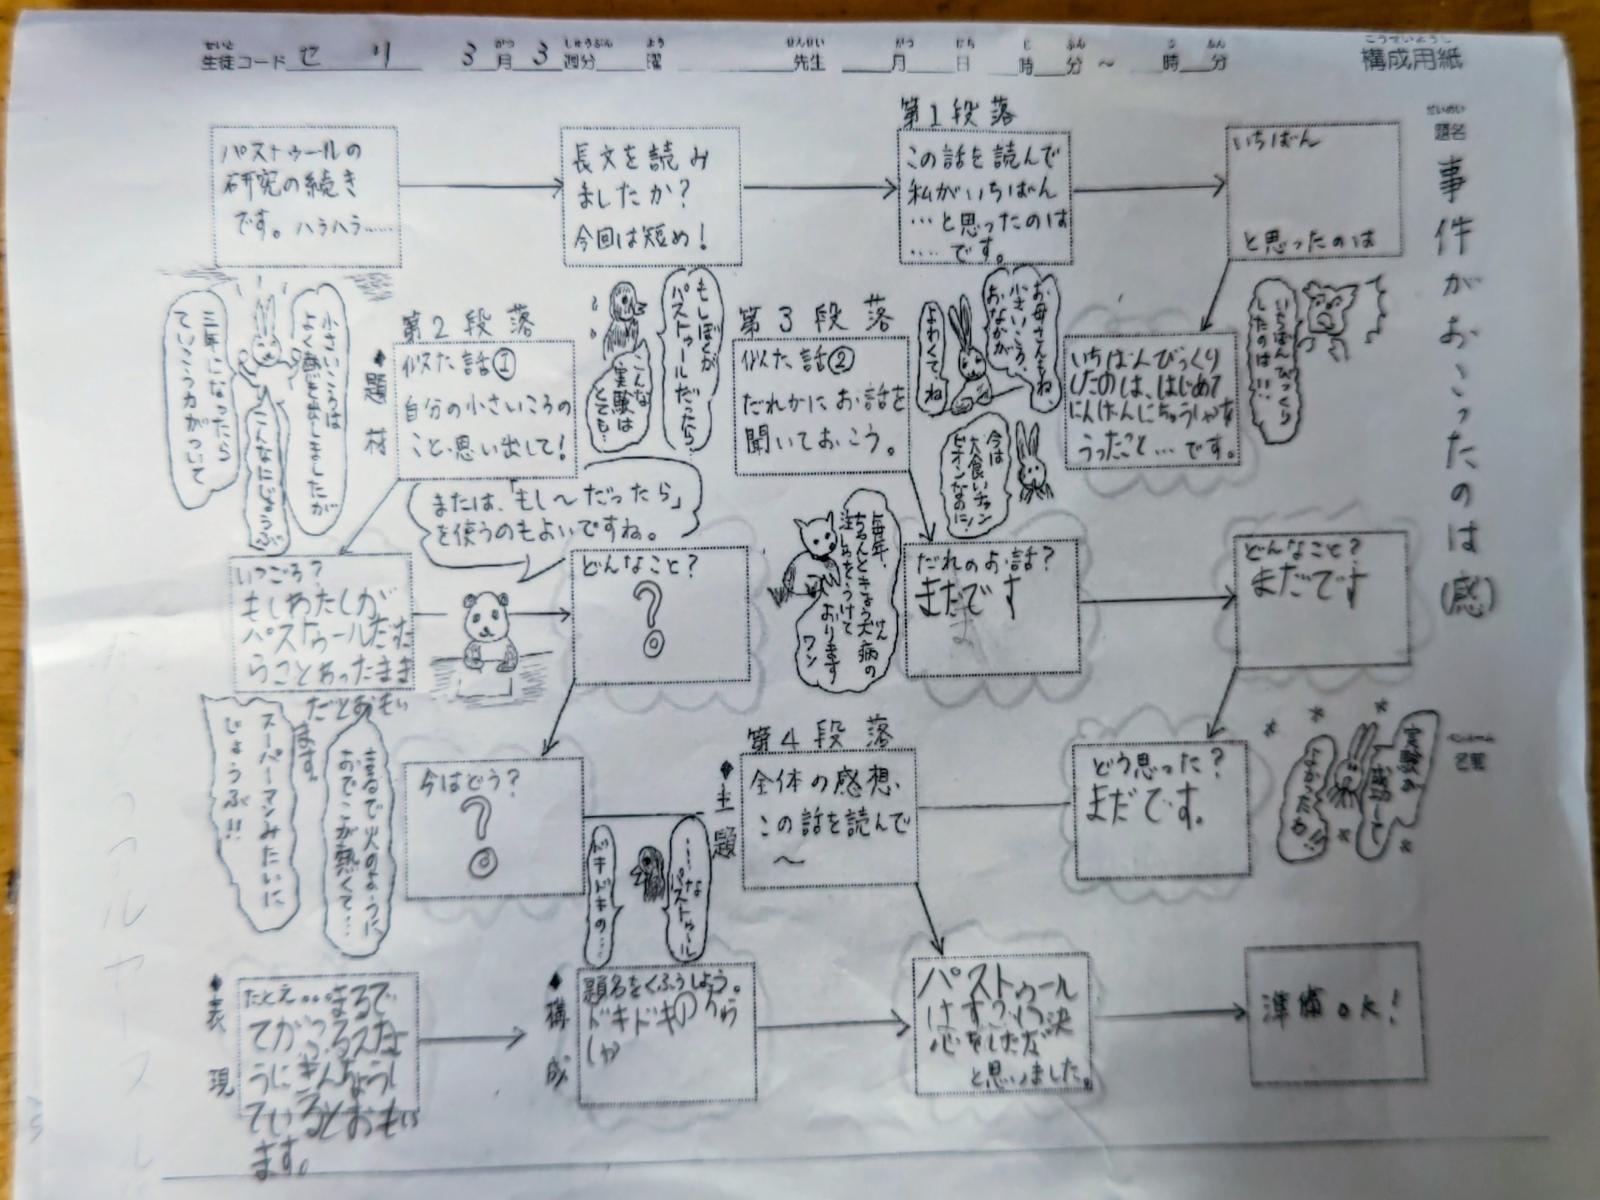 せいと
生徒コード セリ 3月 3週分 曜 先生 月 日 時 分 ～ 時 分
こうせいようし
構成用紙
せいめい
題名
事件がおこったのは(感)
パストゥールの
研究の続き
です。ハラハラ……
長文を読み
ましたか?
今回は短め!
第1段落
この話を読んで
私がいちばん
…と思ったのは
….です。
いちばん
と思ったのは
いちばんびっくり
したのは…
いちばんびっくり
したのは、はじめて
にんげんにちゅうしゃを
うったこと…です。
◆題材
第2段落
似た話①
自分の小さいころの
こと、思い出して!
小さいころは
よく熱を出しましたが
三年になったら
ていこう力がついて
こんなにじょうぶ
もしぼくが
パストゥールだったら
こんな
実験は
とても…
または、「もし〜だったら」
を使うのもよいですね。
いつごろ?
もしわたしが
パストゥールだった
らことあったまま
だとおもい
ます。
どんなこと?
?
今はどう?
?
まるで火のように
おでこが熱くて…
スーパーマンみたいに
じょうぶ!!
第3段落
似た話②
だれかにお話を
聞いておこう。
お母さんもね
小さいころ、
おなかが
よわくてね
今は
大食いチャン
ピオンなのに!
毎年、
ちゃんときょう犬病の
けん
注しゃをうけて
おります
ワン
だれのお話?
まだです
どんなこと?
まだです
どう思った?
まだです。
実験が
成功して
よかったわ!!
◆主題
第4段落
全体の感想、
この話を読んで
〜
……な
パストゥール
ドキドキの…
パストゥール
はすごい決
心をしたな
と思いました。
◆表現
たとえ…まるで
ていると おもい
ます。
◆構成
題名をくふうしよう。
ドキドキの
準備OK!